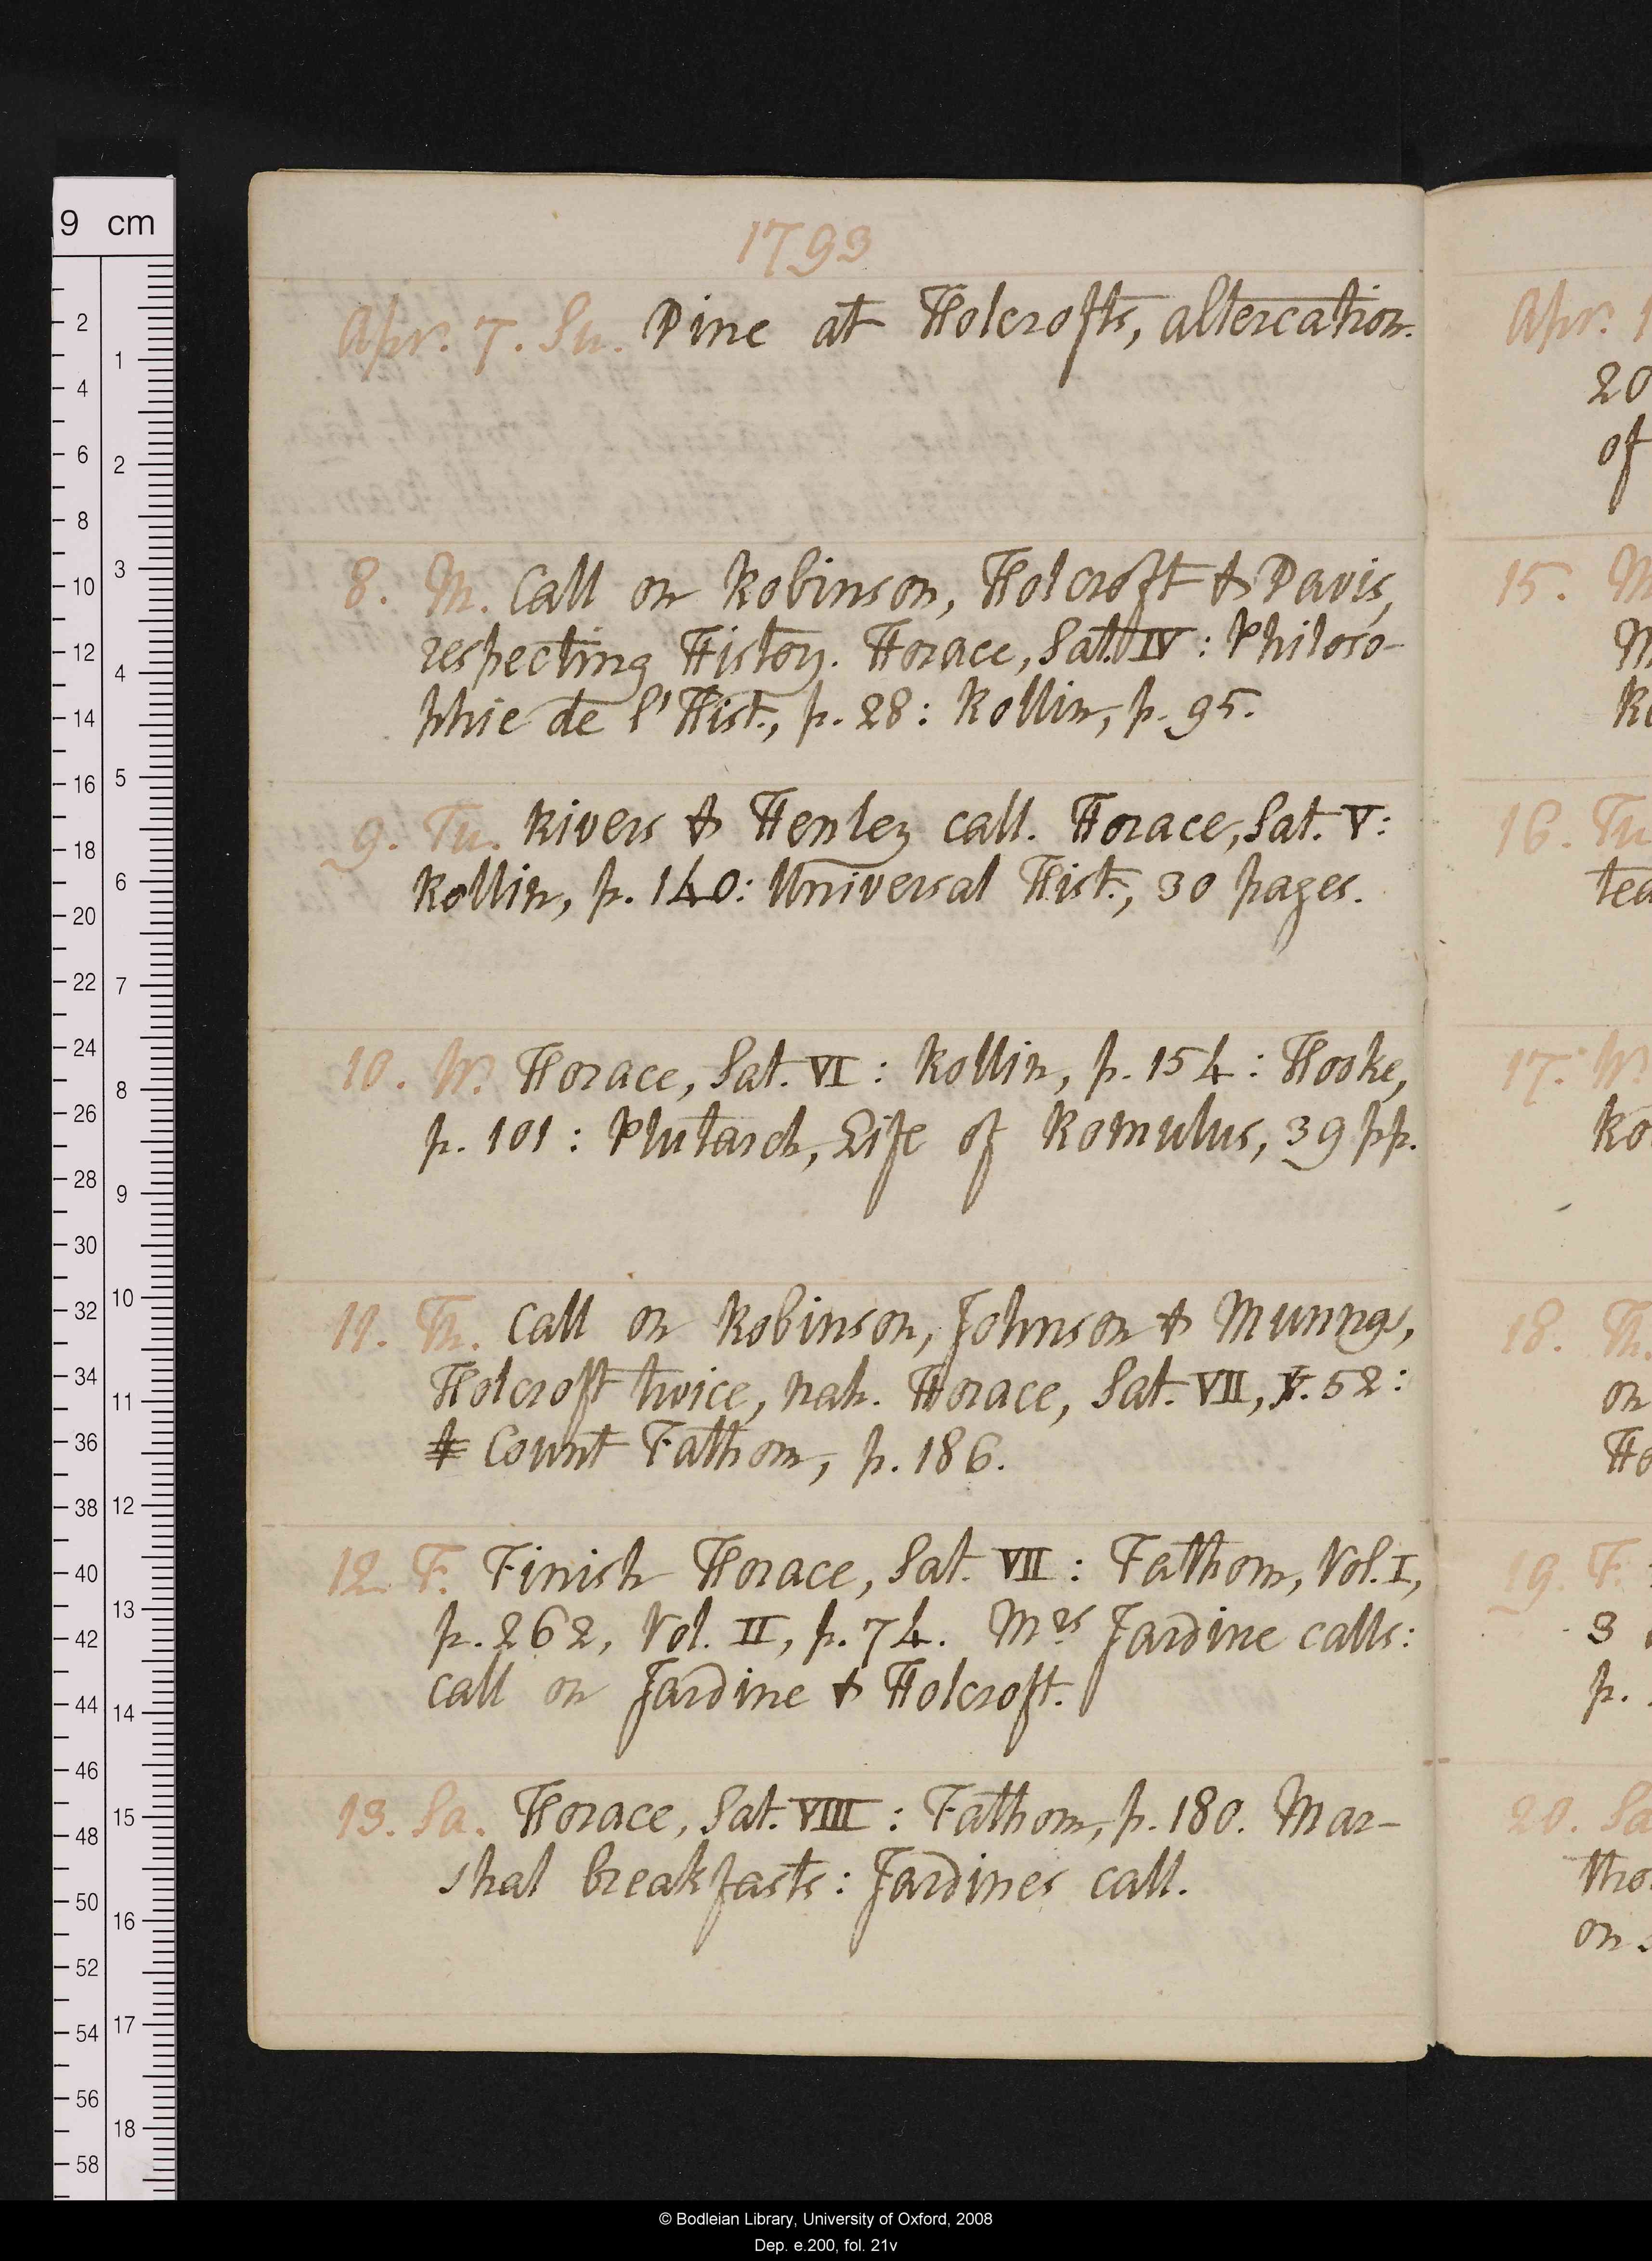 1793
Apr. 7. Su. Dine at Holcrofts, altercation.
8. M. Call on Robinson, Holcroft & Davis,
respecting History. Horace, Sat. IV: Philoso-
phie de l'Hist., p. 28: Rollin, p. 95.
9. Tu. Rivers & Henley call. Horace, Sat. V:
Rollin, p. 140: Universal Hist., 30 pages.
10. W. Horace, Sat. VI: Rollin, p. 154: Hooke,
p. 101: Plutarch, Life of Romulus, 39 pp.
11. Th. Call on Robinson, Johnson & Munngs,
Holcroft twice, nah. Horace, Sat. VII, v. 52:
Count Fathom, p. 186.
12. F. Finish Horace, Sat. VII: Fathom, Vol. I,
p. 262, Vol. II, p. 74. Mrs Jardine calls:
call on Jardine & Holcroft.
13. Sa. Horace, Sat. VIII: Fathom, p. 180. Mar-
shal breakfasts: Jardines call.
Apr. 1
20
of
15. M
M
Ro
16. Tu
tea
17. W.
Ro
18. Th.
on
Ho
19. F.
3
p.
20. Sa
tho
on
9 cm
2
4
6
8
10
12
14
16
18
20
22
24
26
28
30
32
34
36
38
40
42
44
46
48
50
52
54
56
58
1
2
3
4
5
6
7
8
9
10
11
12
13
14
15
16
17
18
© Bodleian Library, University of Oxford, 2008
Dep. e.200, fol. 21v